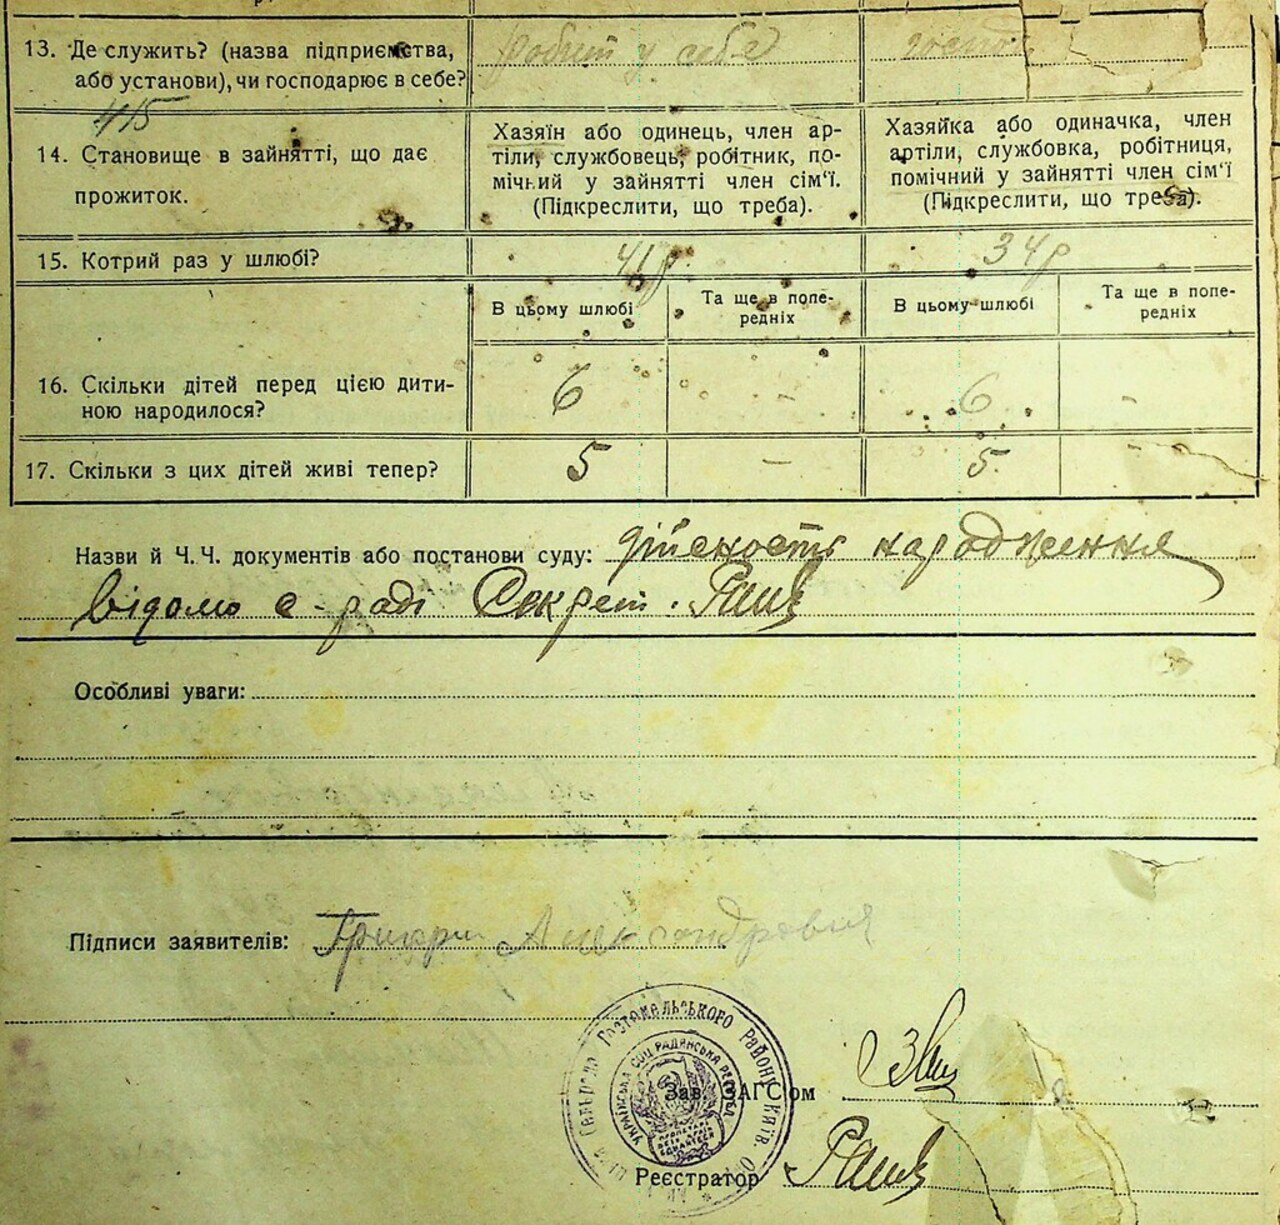 13. Де служить? (назва підприємства, або установи), чи господарює в себе?
робит у себе
415
14. Становище в зайнятті, що дає прожиток.
Хазяїн або одинець, член ар-
тіли, службовець, робітник, по-
мічний у зайнятті член сім'ї.
(Підкреслити, що треба).
Хазяйка або одиначка, член
артіли, службовка, робітниця,
помічний у зайнятті член сім'ї
(Підкреслити, що треба).
15. Котрий раз у шлюбі?
41р
34р
В цьому шлюбі
Та ще в попе-
редніх
В цьому шлюбі
Та ще в попе-
редніх
16. Скільки дітей перед цією дити-
ною народилося?
6 - 6 -
17. Скільки з цих дітей живі тепер?
5 - 5 -
Назви й Ч.Ч. документів або постанови суду: дійсность народження
відомо с-раді Секрет.
Особливі уваги:
Підписи заявителів:
Гостомельського Району Київ.
УКРАЇНСЬКА СОЦ. РАДЯНСЬКА РЕСПУБ
Зав. ЗАГС'ом
Реєстратор